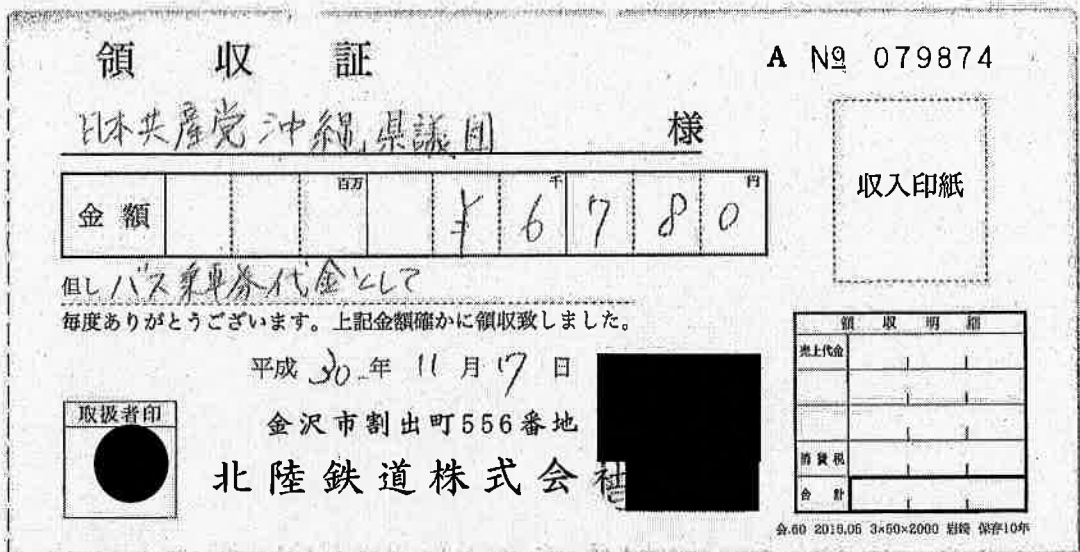 領収証
A № 079874
日本共産党沖縄県議団 様
収入印紙
金額 百万 千 円
¥6780
但し バス乗車券代金として
毎度ありがとうございます。上記金額確かに領収致しました。
平成30年11月17日
金沢市割出町556番地
北陸鉄道株式会社
取扱者印
領収明細
売上代金
消費税
合計
会.60 2016.05 3×50×2000 保存10年